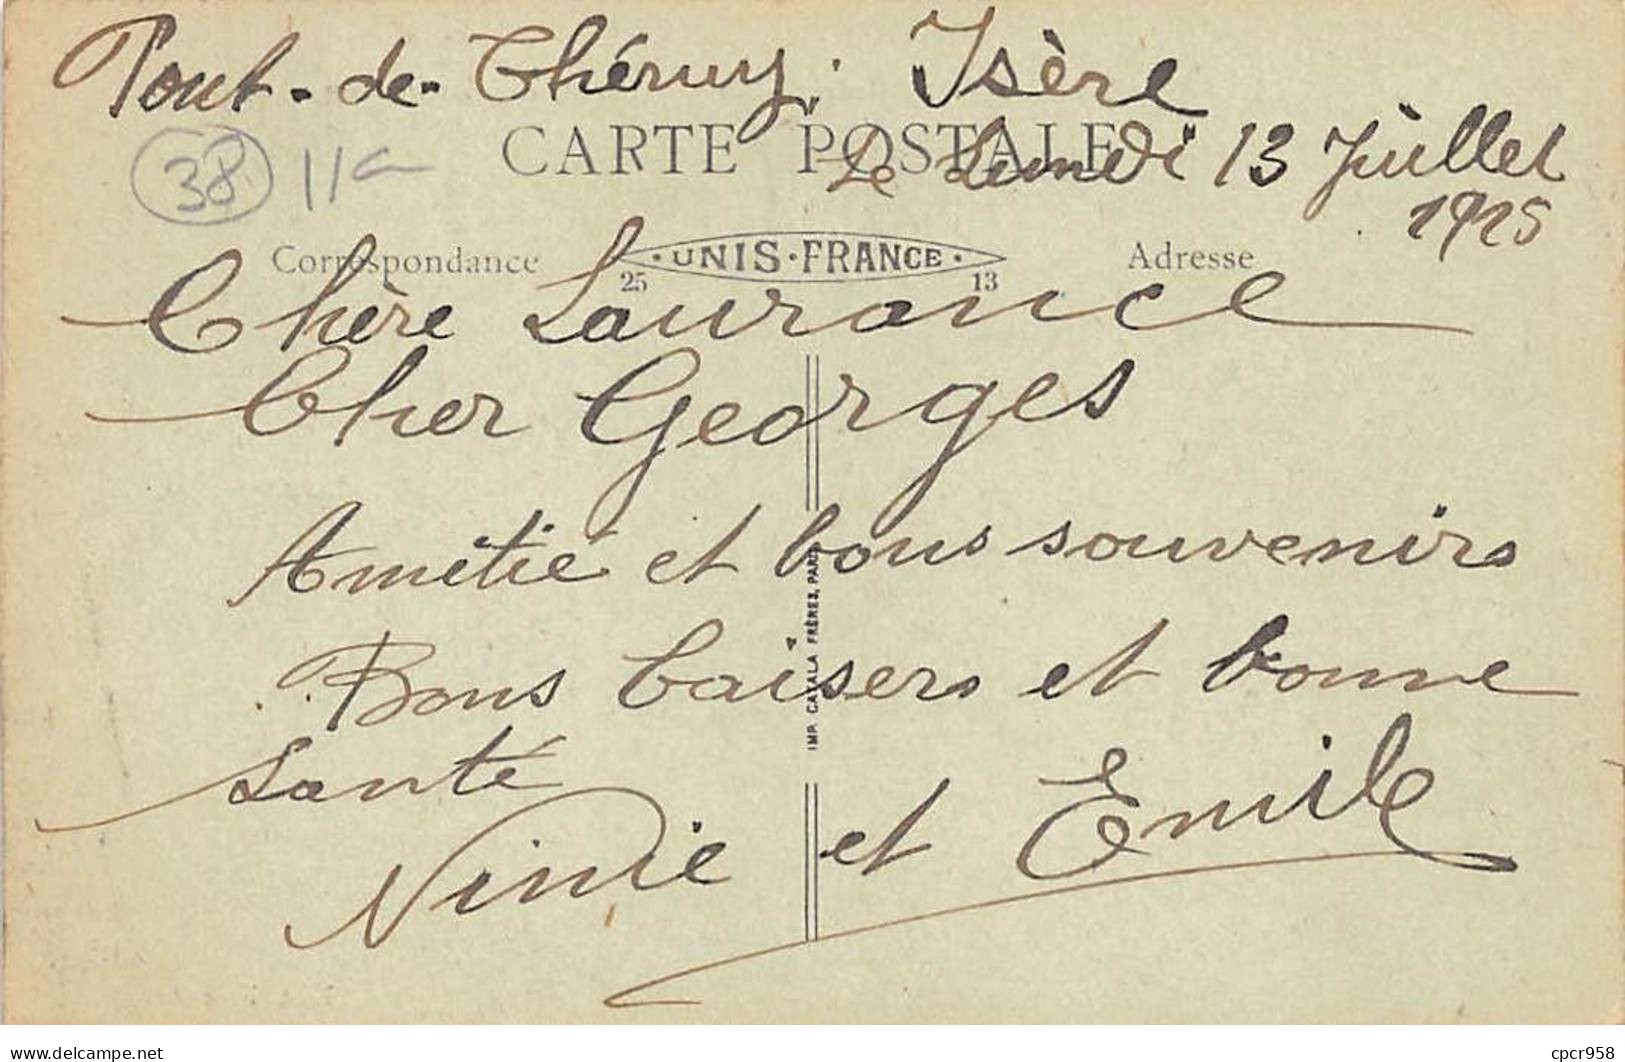 Pont-de-Chéruy. Isère
CARTE POSTALE
Le Lundi 13 Juillet
1925
38 11
Correspondance
UNIS-FRANCE
Adresse
25 13
Chère Laurance
Cher Georges
Amitié et bons souvenirs
Bons baisers et bonne
santé
Ninie et Emile
IMP. CATALA FRÈRES, PARIS
delcampe.net
cpcr958